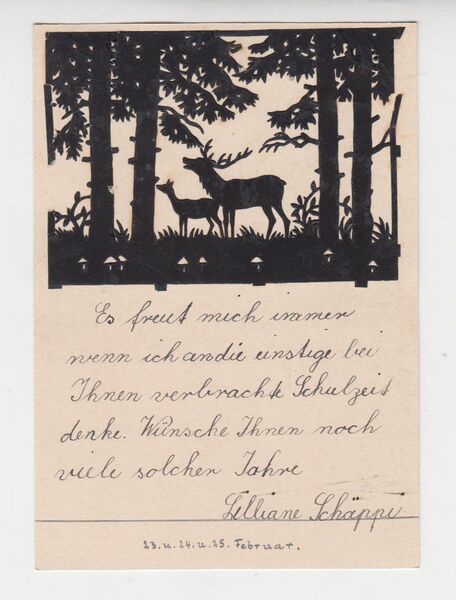 Es freut mich immer
wenn ich an die einstige bei
Ihnen verbrachte Schulzeit
denke. Wünsche Ihnen noch
viele solcher Jahre
Lilliane Schäppi
23. u. 24. u. 25. Februar.